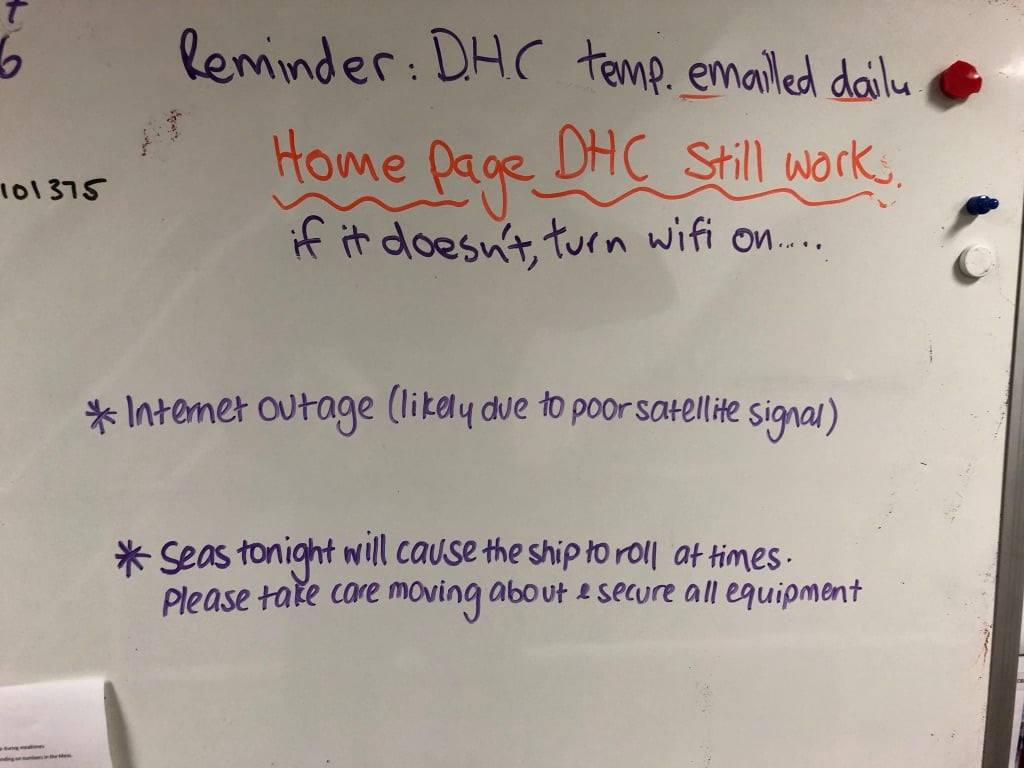 t
6
Reminder: D.H.C temp. emailled daily
Home Page DHC Still works.
101375
if it doesn't, turn wifi on.....
* Internet outage (likely due to poor satellite signal)
* Seas tonight will cause the ship to roll at times.
Please take care moving about & secure all equipment
during mealtimes
nding on numbers in the Mess.